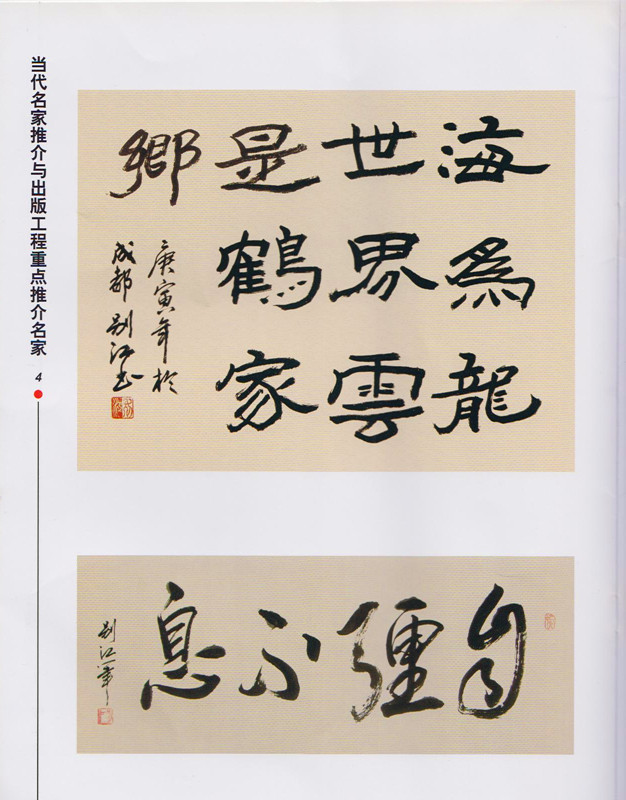 当代名家推介与出版工程重点推介名家
4
海為龍
世界雲
是鶴家
鄉
庚寅年於
成都别江书
自彊不息
别江